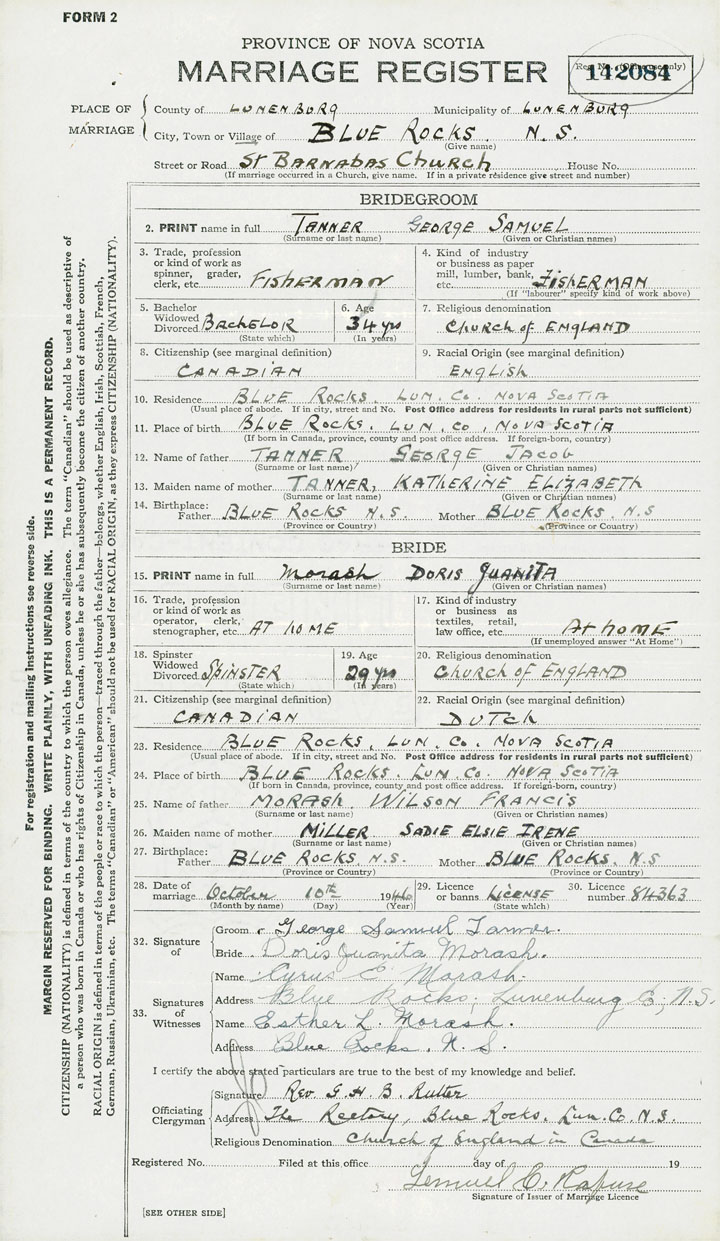 FORM 2
PROVINCE OF NOVA SCOTIA
MARRIAGE REGISTER
Reg. No. (Office use only)
142084
PLACE OF MARRIAGE
County of LUNENBURG Municipality of LUNENBURG
City, Town or Village of BLUE ROCKS N. S.
(Give name)
Street or Road St BARNABAS CHURCH House No.
(If marriage occurred in a Church, give name. If in a private residence give street and number)
BRIDEGROOM
2. PRINT name in full TANNER GEORGE SAMUEL
(Surname or last name) (Given or Christian names)
3. Trade, profession or kind of work as spinner, grader, clerk, etc. FISHERMAN
4. Kind of industry or business as paper mill, lumber, bank, etc. FISHERMAN
(If "labourer" specify kind of work above)
5. Bachelor Widowed Divorced BACHELOR
(State which)
6. Age 34 yrs
(In years)
7. Religious denomination
CHURCH of ENGLAND
8. Citizenship (see marginal definition)
CANADIAN
9. Racial Origin (see marginal definition)
ENGLISH
10. Residence BLUE ROCKS. LUN. Co. NOVA SCOTIA
(Usual place of abode. If in city, street and No. Post Office address for residents in rural parts not sufficient)
11. Place of birth BLUE ROCKS. LUN. Co. NOVA SCOTIA
(If born in Canada, province, county and post office address. If foreign-born, country)
12. Name of father TANNER GEORGE JACOB
(Surname or last name) (Given or Christian names)
13. Maiden name of mother TANNER, KATHERINE ELIZABETH
(Surname or last name) (Given or Christian names)
14. Birthplace: Father BLUE ROCKS N.S. Mother BLUE ROCKS. N.S
(Province or Country) (Province or Country)
BRIDE
15. PRINT name in full MORASH DORIS JUANITA
(Surname or last name) (Given or Christian names)
16. Trade, profession or kind of work as operator, clerk, stenographer, etc. AT HOME
17. Kind of industry or business as textiles, retail, law office, etc. AT HOME
(If unemployed answer "At Home")
18. Spinster Widowed Divorced SPINSTER
(State which)
19. Age 29 yrs
(In years)
20. Religious denomination
CHURCH OF ENGLAND
21. Citizenship (see marginal definition)
CANADIAN
22. Racial Origin (see marginal definition)
DUTCH
23. Residence BLUE ROCKS. LUN. Co. NOVA SCOTIA
(Usual place of abode. If in city, street and No. Post Office address for residents in rural parts not sufficient)
24. Place of birth BLUE ROCKS. LUN. Co. NOVA SCOTIA
(If born in Canada, province, county and post office address. If foreign-born, country)
25. Name of father MORASH WILSON FRANCIS
(Surname or last name) (Given or Christian names)
26. Maiden name of mother MILLER SADIE ELSIE IRENE
(Surname or last name) (Given or Christian names)
27. Birthplace: Father BLUE ROCKS, N.S. Mother BLUE ROCKS. N.S
(Province or Country) (Province or Country)
28. Date of marriage October 10th 1946
(Month by name) (Day) (Year)
29. Licence or banns LICENSE
(State which)
30. Licence number 84363
32. Signature of
Groom George Samuel Tanner.
Bride Doris Juanita Morash.
33. Signatures of Witnesses
Name Cyrus E. Morash.
Address Blue Rocks, Lunenburg Co, N.S.
Name Esther L. Morash.
Address Blue Rocks. N. S.
I certify the above stated particulars are true to the best of my knowledge and belief.
Officiating Clergyman
Signature Rev. G. H. B. Rutter
Address The Rectory, Blue Rocks. Lun. Co. N.S.
Religious Denomination Church of England in Canada
Registered No. Filed at this office day of 19
Lemuel C. Rafuse
Signature of Issuer of Marriage Licence
[SEE OTHER SIDE]
For registration and mailing instructions see reverse side.
MARGIN RESERVED FOR BINDING. WRITE PLAINLY, WITH UNFADING INK. THIS IS A PERMANENT RECORD.
CITIZENSHIP (NATIONALITY) is defined in terms of the country to which the person owes allegiance. The term "Canadian" should be used as descriptive of
a person who was born in Canada or who has rights of Citizenship in Canada, unless he or she has subsequently become the citizen of another country.
RACIAL ORIGIN is defined in terms of the people or race to which the person—traced through the father—belongs, whether English, Irish, Scottish, French,
German, Russian, Ukrainian, etc. The terms "Canadian" or "American" should not be used for RACIAL ORIGIN, as they express CITIZENSHIP (NATIONALITY).